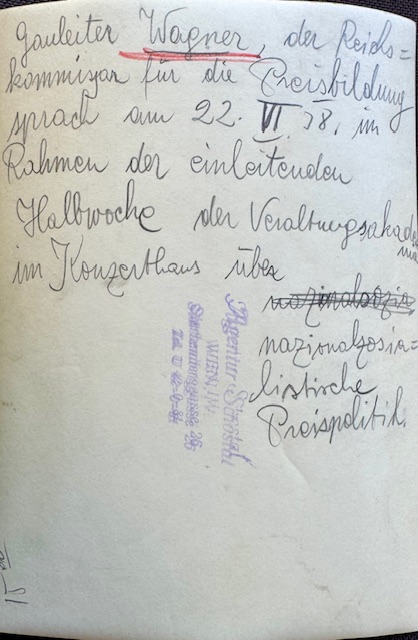 Gauleiter Wagner, der Reichs=
kommissar für die Preisbildung
sprach am 22. VI 38. im
Rahmen der einleitenden
Halbwoche der Veraltungsakade
mie
im Konzerthaus über
nazionalsozia=
listische
Preispolitik.
Agentur
WIEN, IV.